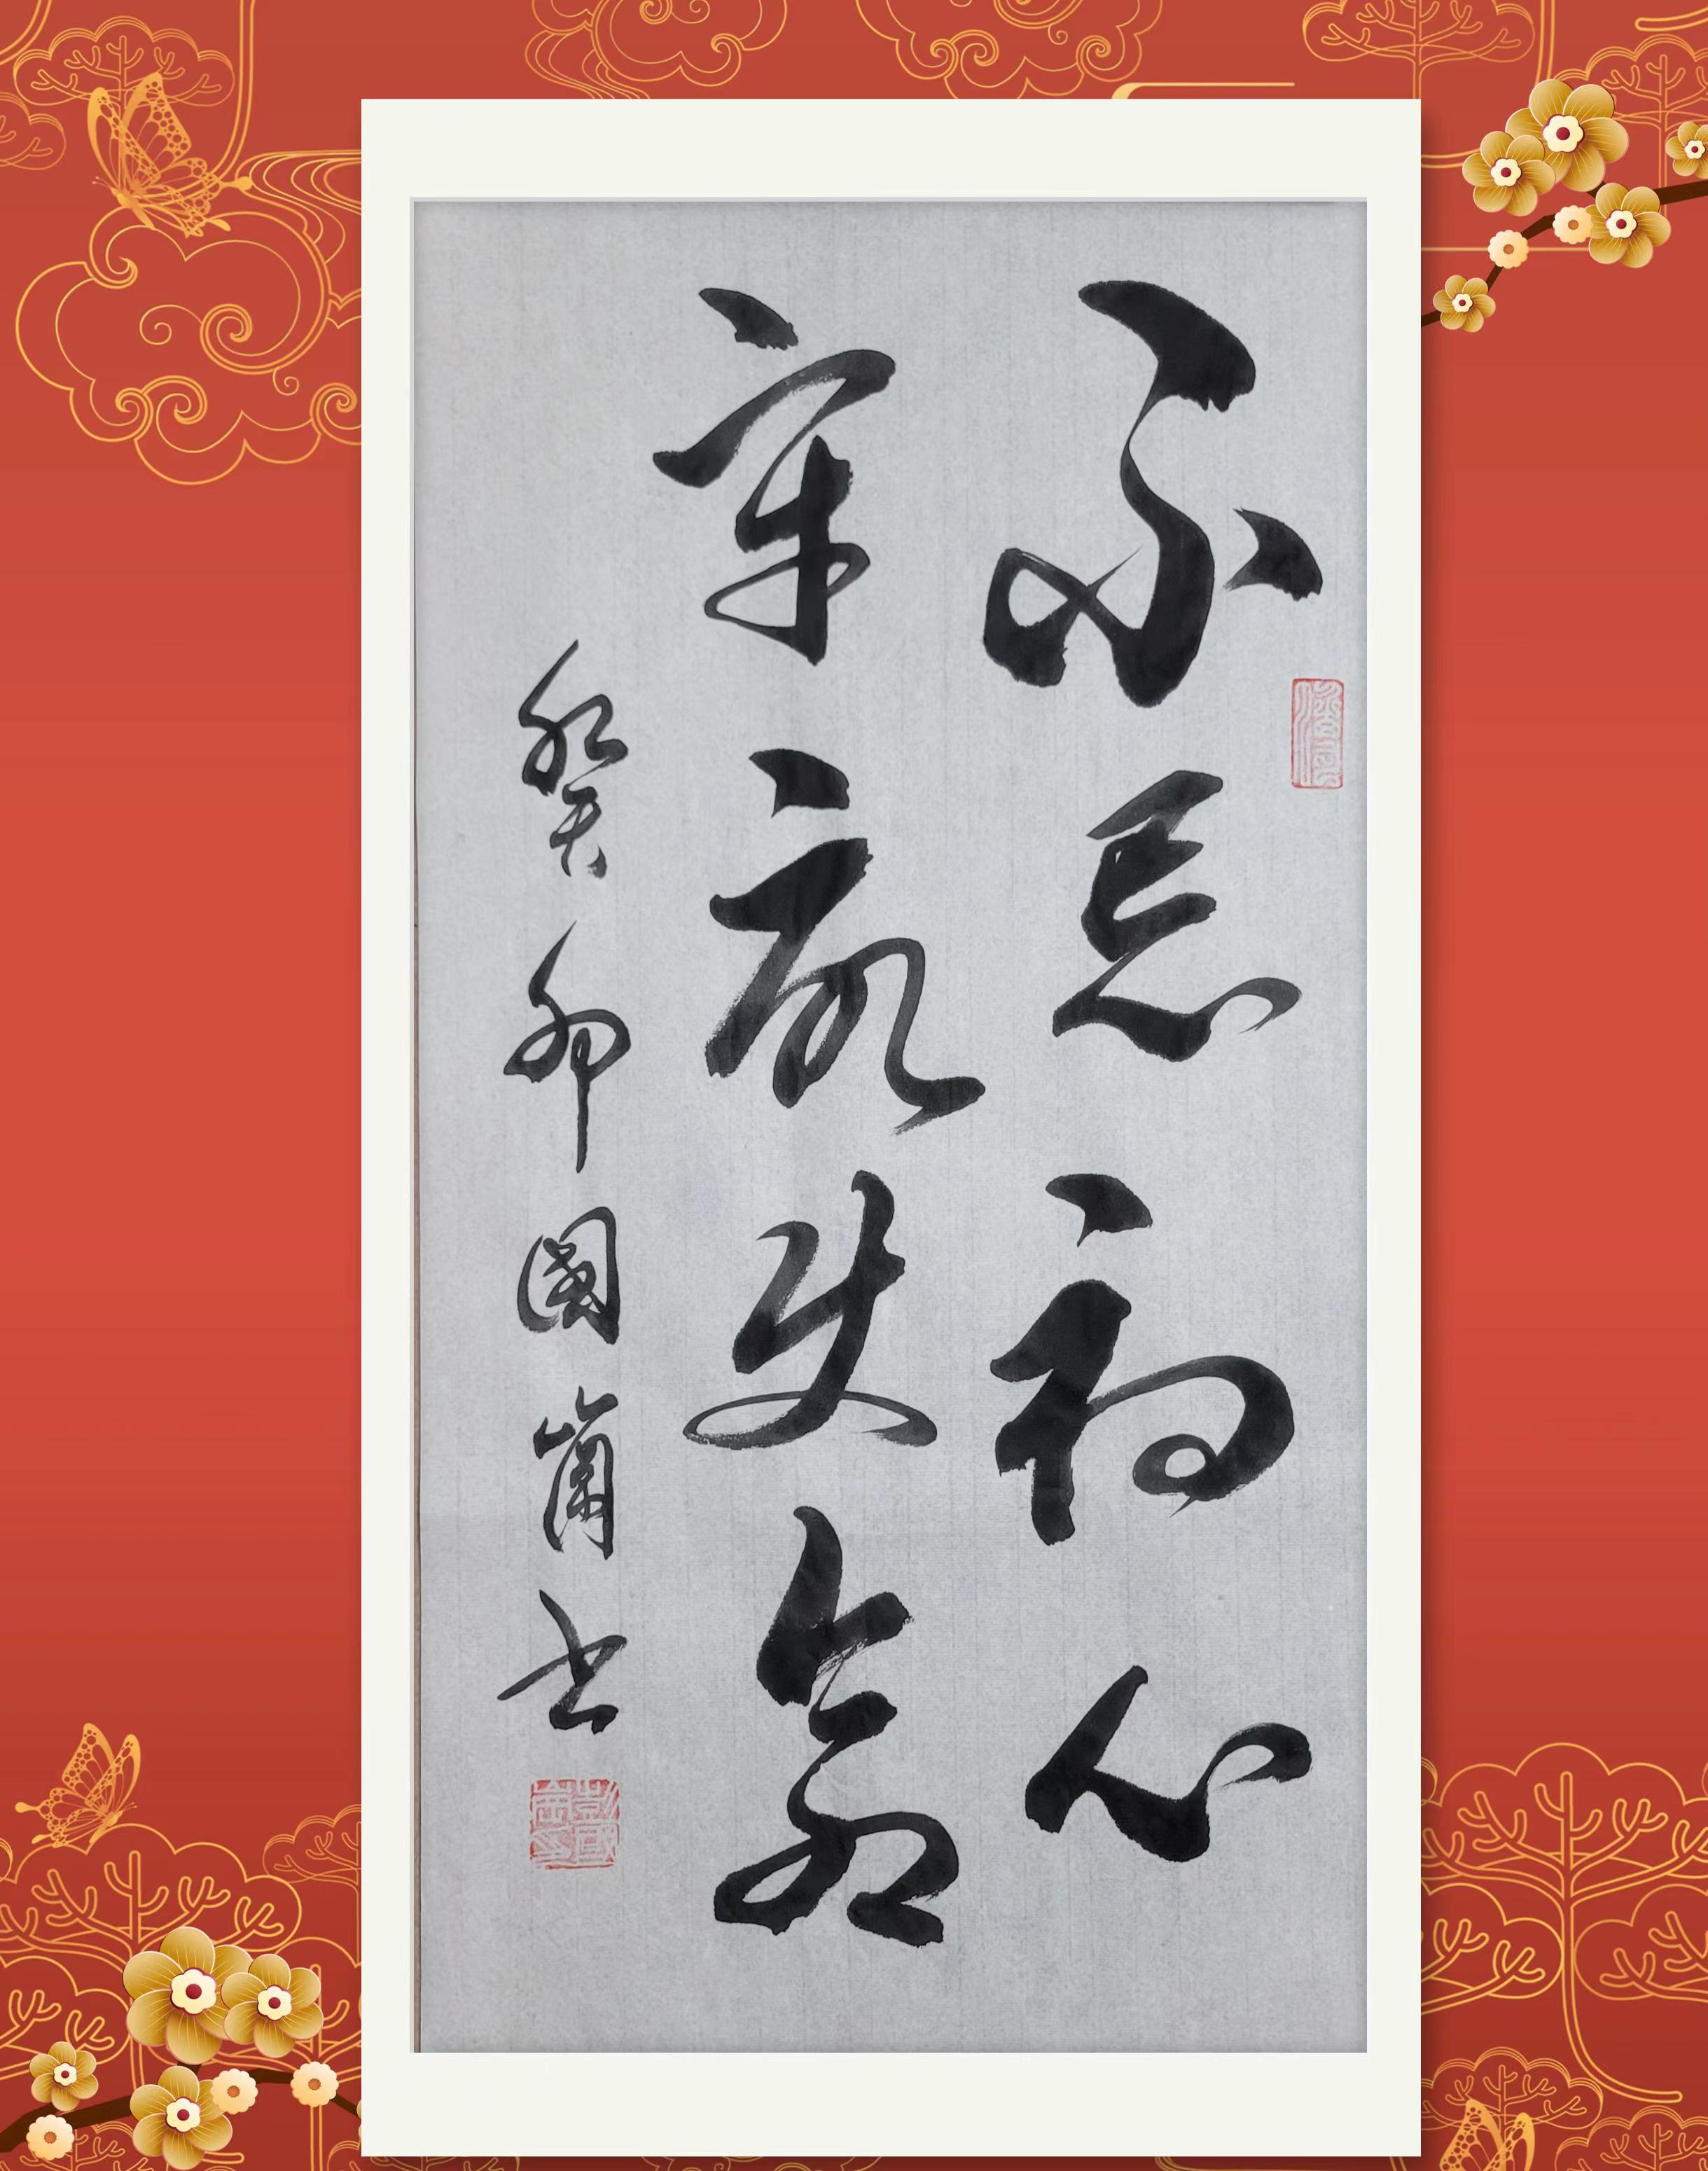 不忘初心
牢记使命
癸卯国兰书